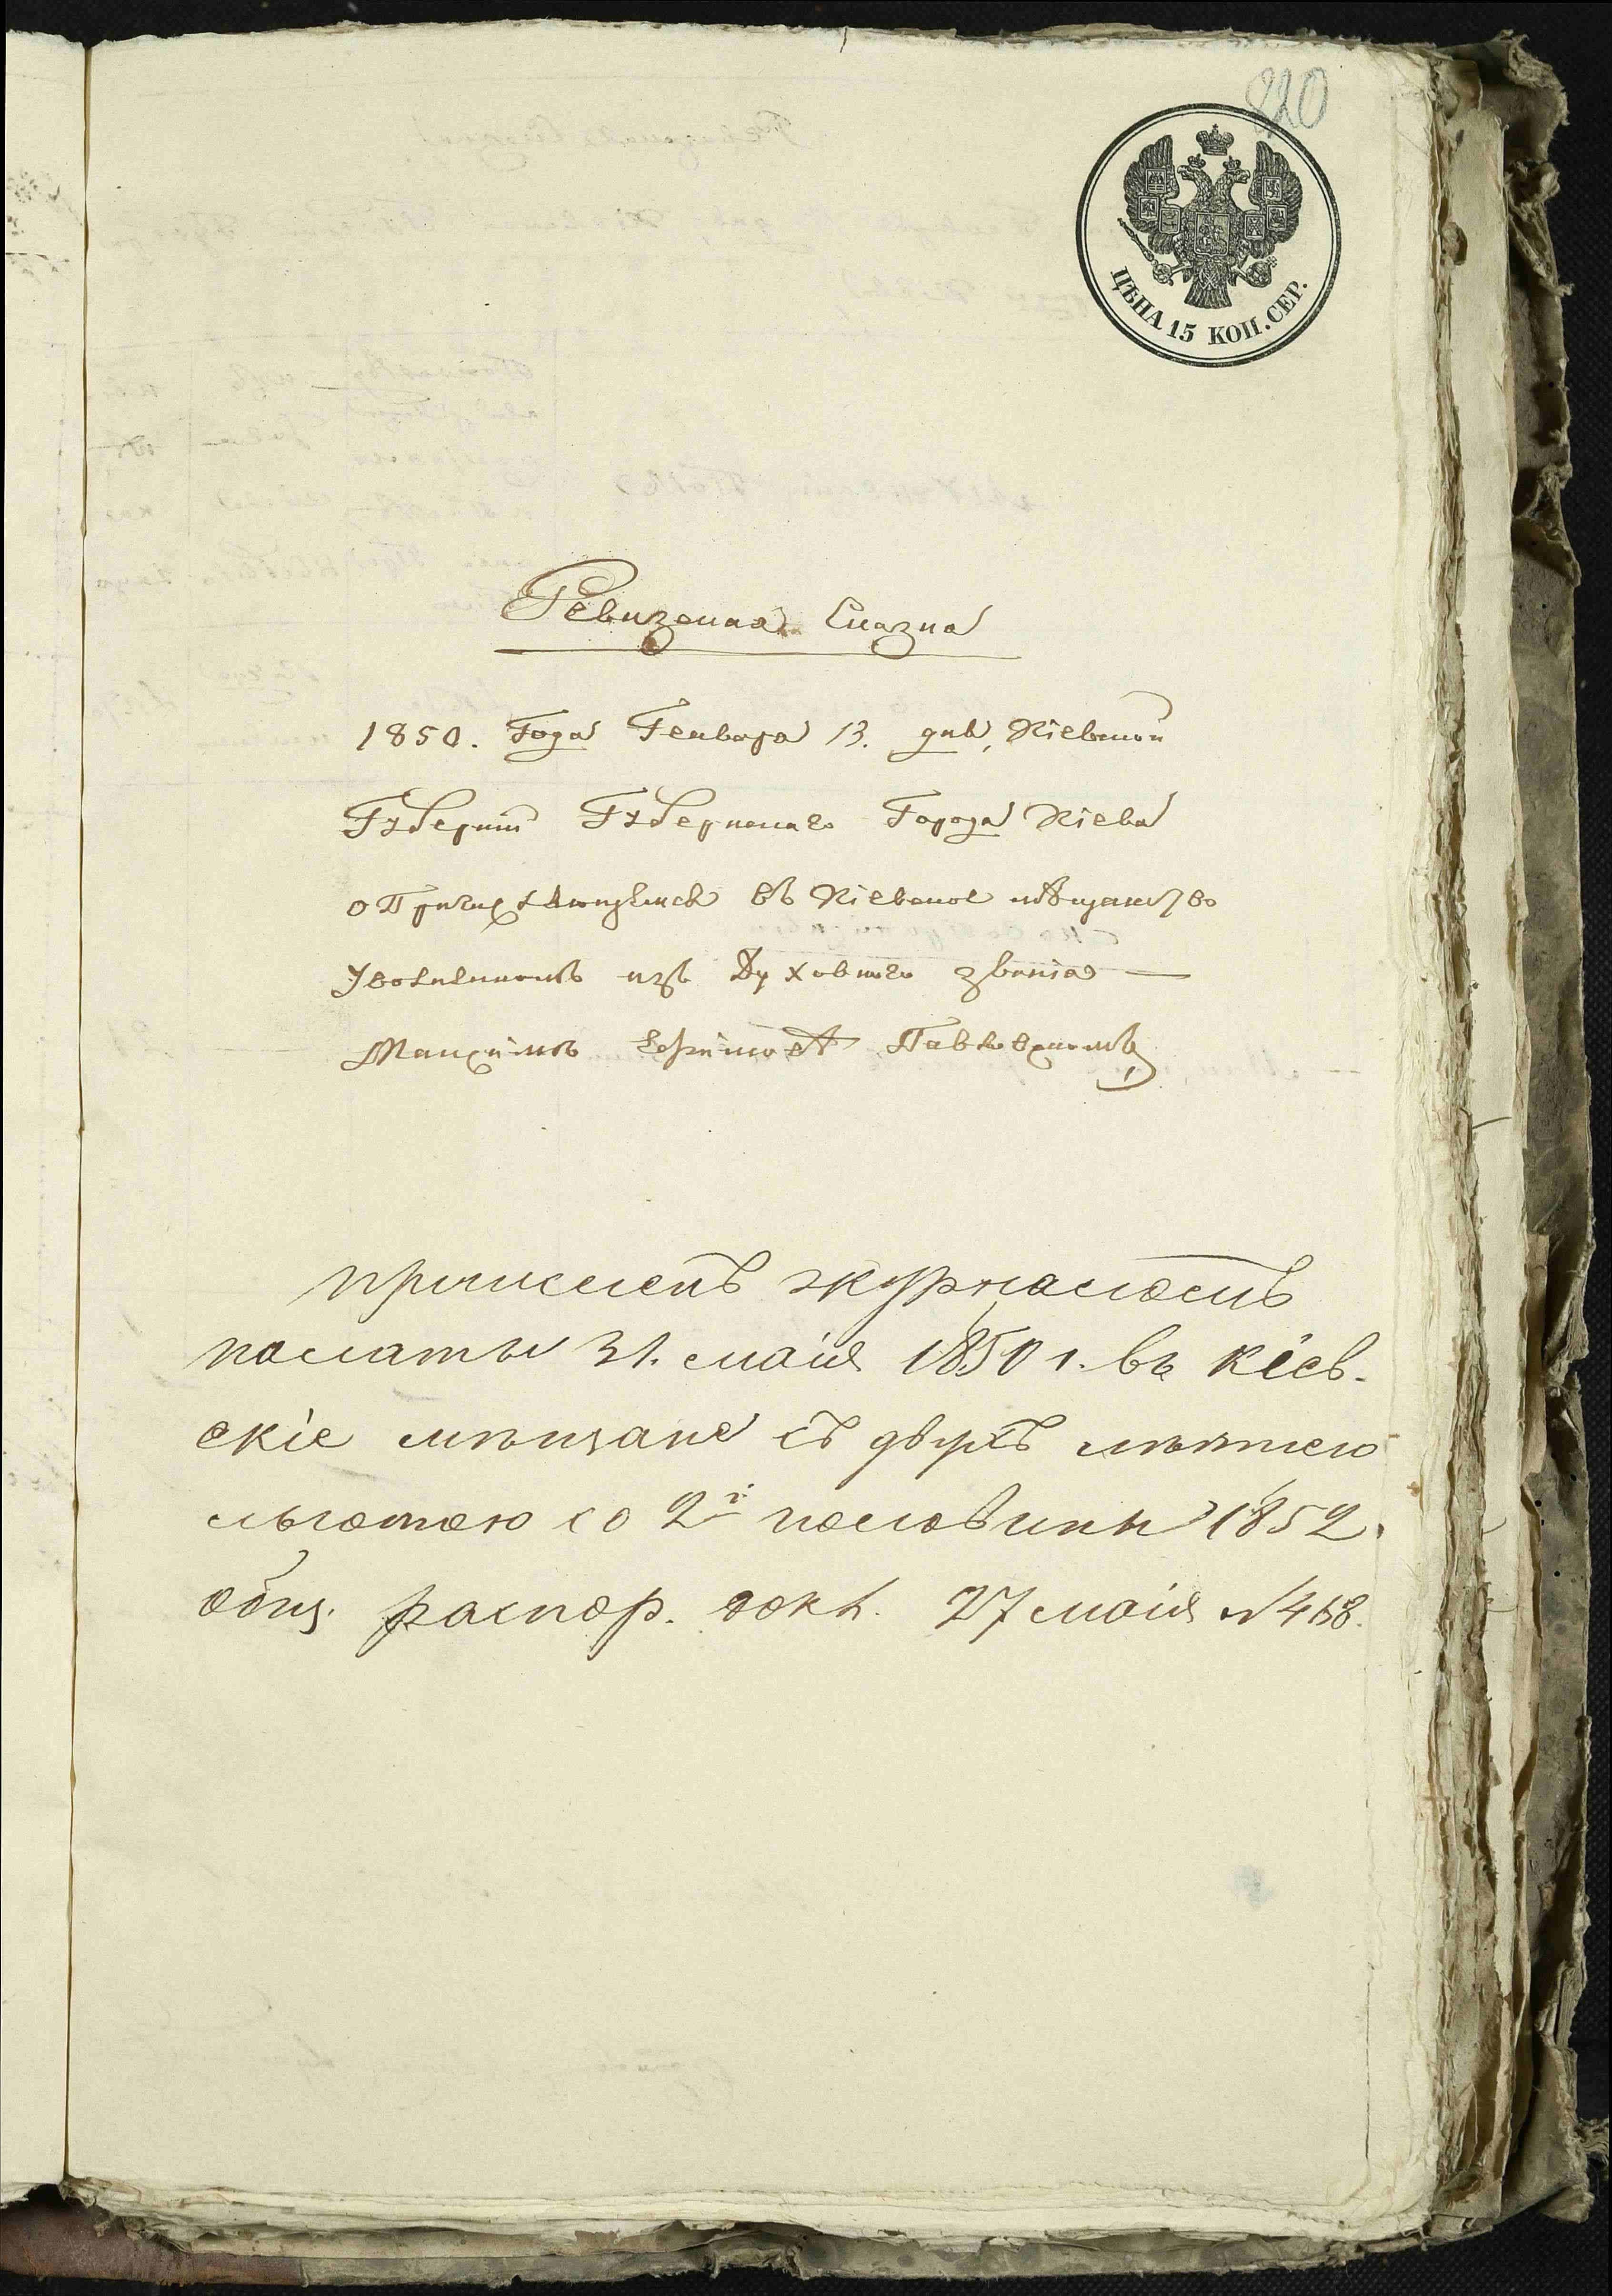 220
ЦѢНА 15 КОП. СЕР.
Ревизская Сказка
1850. Года Генваря 13. дня, Кіевской
Губерніи Губернскаго Города Кіева
о Причисляющемся въ Кіевское мѣщанство
Уволенномъ изъ Духовнаго званія
Максимѣ Павловскомъ
причисленъ журналомъ
палаты 31. маія 1850 г. въ Кіев-
скіе мѣщане съ двухъ лѣтнею
льготою со 2й половины 1852.
общ. распор. докл. 27 маія №